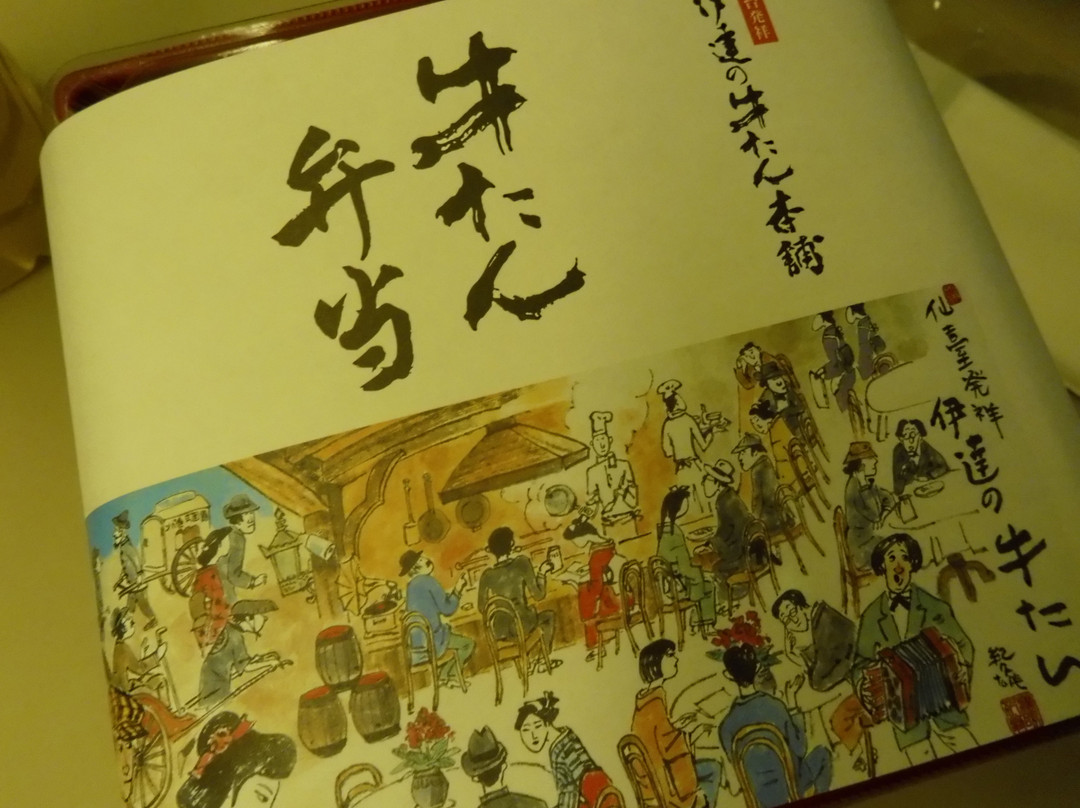 発祥
伊達の牛たん本舗
牛たん
弁当
仙臺発祥
伊達の牛たん